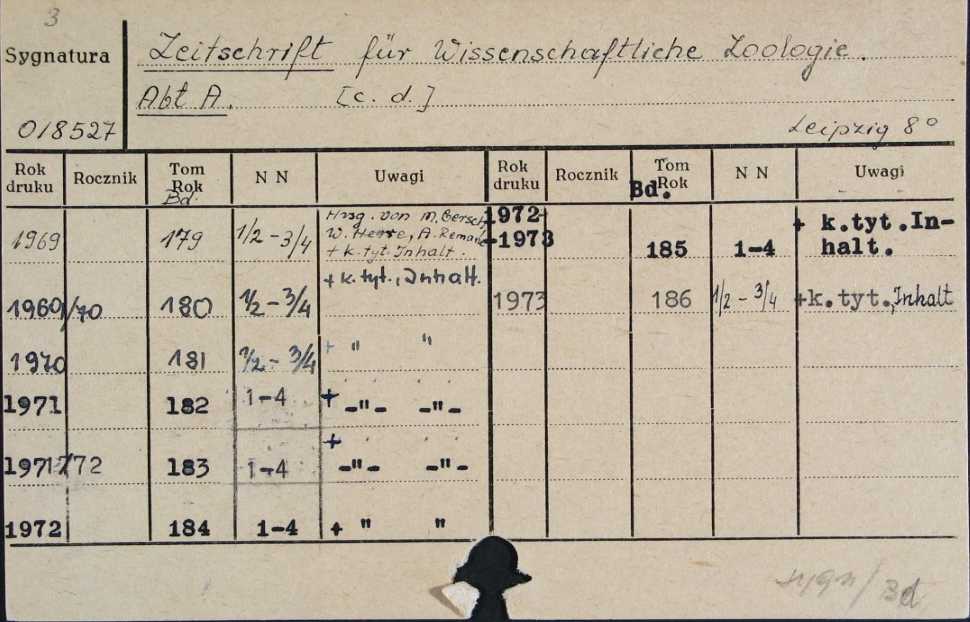 3
Sygnatura Zeitschrift für Wissenschaftliche Zoologie.
Abt A. [c. d.]
018527 Leipzig 8°
Rok druku Rocznik Tom Rok Bd. N N Uwagi Rok druku Rocznik Tom Rok Bd. N N Uwagi
1969 179 1/2 - 3/4 Hrsg. von M. Gersch,
W. Herre, A. Remane
+ k. tyt. Inhalt.
1969/70 180 1/2 - 3/4 + k. tyt., Inhalt.
1970 181 1/2 - 3/4 + " "
1971 182 1-4 + -"- -"-
1971/72 183 1-4 + -"- -"-
1972 184 1-4 + " "
1972-
-1973 185 1-4 + k.tyt.In-
halt.
1973 186 1/2 - 3/4 +k.tyt.,Inhalt
sygn/Bd